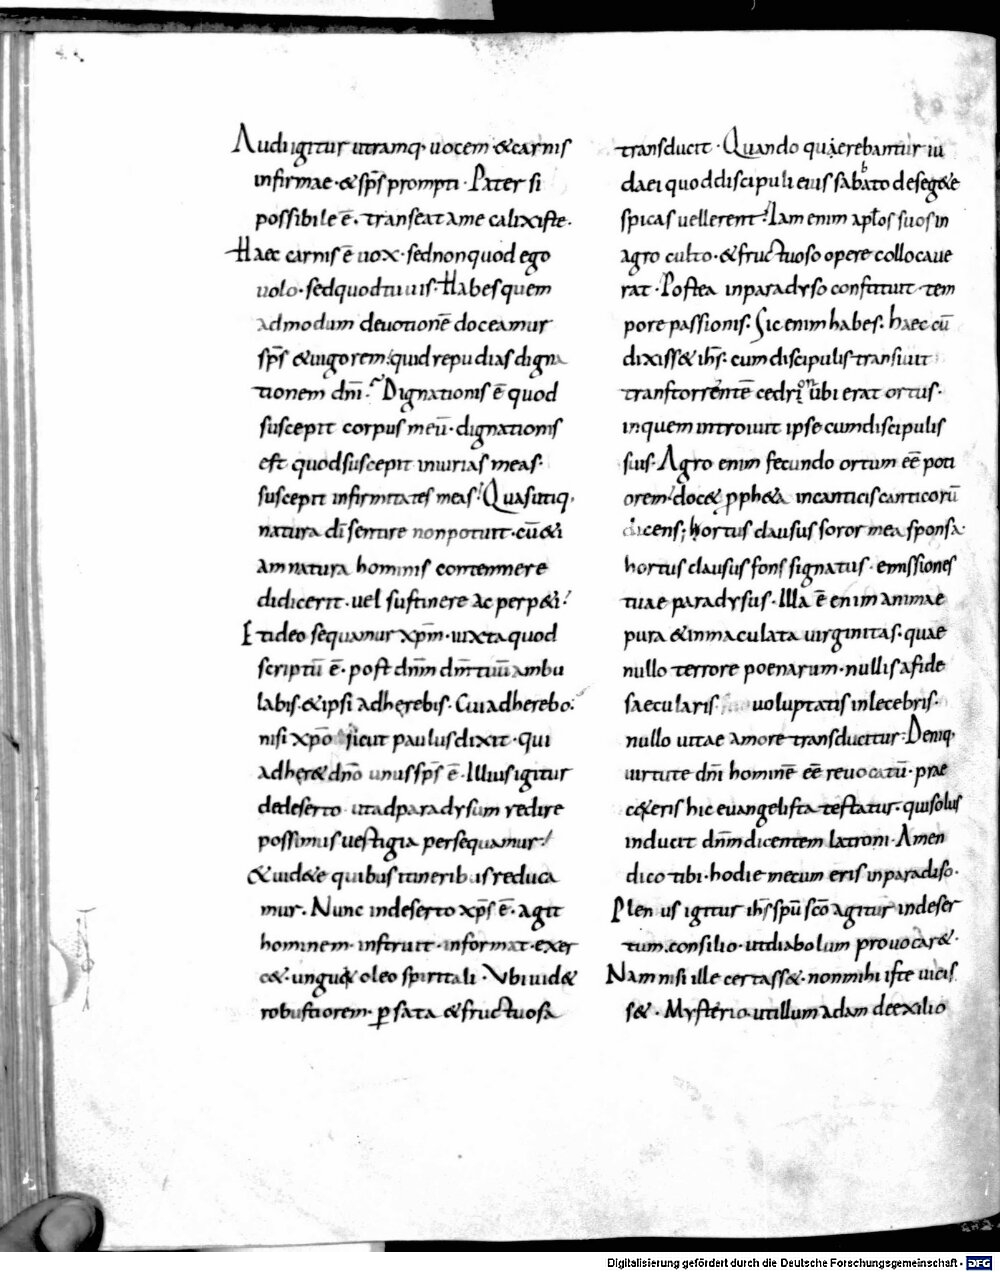 Audi igitur utramq· uocem· & carnis
infirmae· & sp̄s prompti· Pater si
possibile ē· transeat a me calix iste·
Haec carnis ē uox· sed non quod ego
uolo· sed quod tu uis· Habes quem
admodum deuotionē doceamur
sp̄s & uigorem· quid repudias digna
tionem dn̄i· Dignationis ē quod
suscepit corpus meū· dignationis
est quod suscepit iniurias meas·
suscepit infirmitates meas· Quas utiq·
natura dī sentire non potuit· cū &i
am natura hominis contemnere
didicerit· uel sustinere ac perp&i·
Et ideo sequamur xp̄m· iuxta quod
scriptū ē· post dn̄m dm̄ tuū ambu
labis· & ipsi adherebis· Cui adherebo·
nisi xp̄o sicut paulus dixit· qui
adher& dn̄o unus sp̄s ē· Illius igitur
de deserto ut ad paradysum redire
possimus uestigia persequamur·
& uid&e quibus itineribus reduca
mur· Nunc in deserto xp̄s ē· agit
hominem· instruit· informat· exer
c&· ungu& oleo spiritali· Vbi uid&
robustiorem· p sata & fructuosa
transducit· Quando quaerebantur iu
daei quod discipuli eius sabbato de seg&e
spicas uellerent· Iam enim aplōs suos in
agro culto· & fructuoso opere collocaue
rat· Postea in paradyso constituit· tem
pore passionis· Sic enim habes· haec cū
dixiss& ih̄s· cum discipulis transiuit
trans torrentē cedron ubi erat ortus·
in quem introiuit ipse cum discipulis
suis· Agro enim fecundo ortum eē poti
orem· doc& pph&a in canticis canticorū
dicens; hortus clausus soror mea sponsa·
hortus clausus fons signatus· emissiones
tuae paradysus· Illa ē enim animae
pura & inmaculata uirginitas· quae
nullo terrore poenarum· nullis a fide
saecularis uoluptatis inlecebris·
nullo uitae amore transducitur· Deniq·
uirtute dn̄i hominē eē reuocatū· prae
c&eris hic euangelista testatur· qui solus
inducit dn̄m dicentem latroni· Amen
dico tibi· hodie mecum eris in paradiso·
Plenus igitur ih̄s spū scō agitur in deser
tum· consilio· ut diabolum prouocar&·
Nam nisi ille certass&· non mihi iste uicis
s&· Mysterio· ut illum adam de exilio
Digitalisierung gefördert durch die Deutsche Forschungsgemeinschaft - DFG